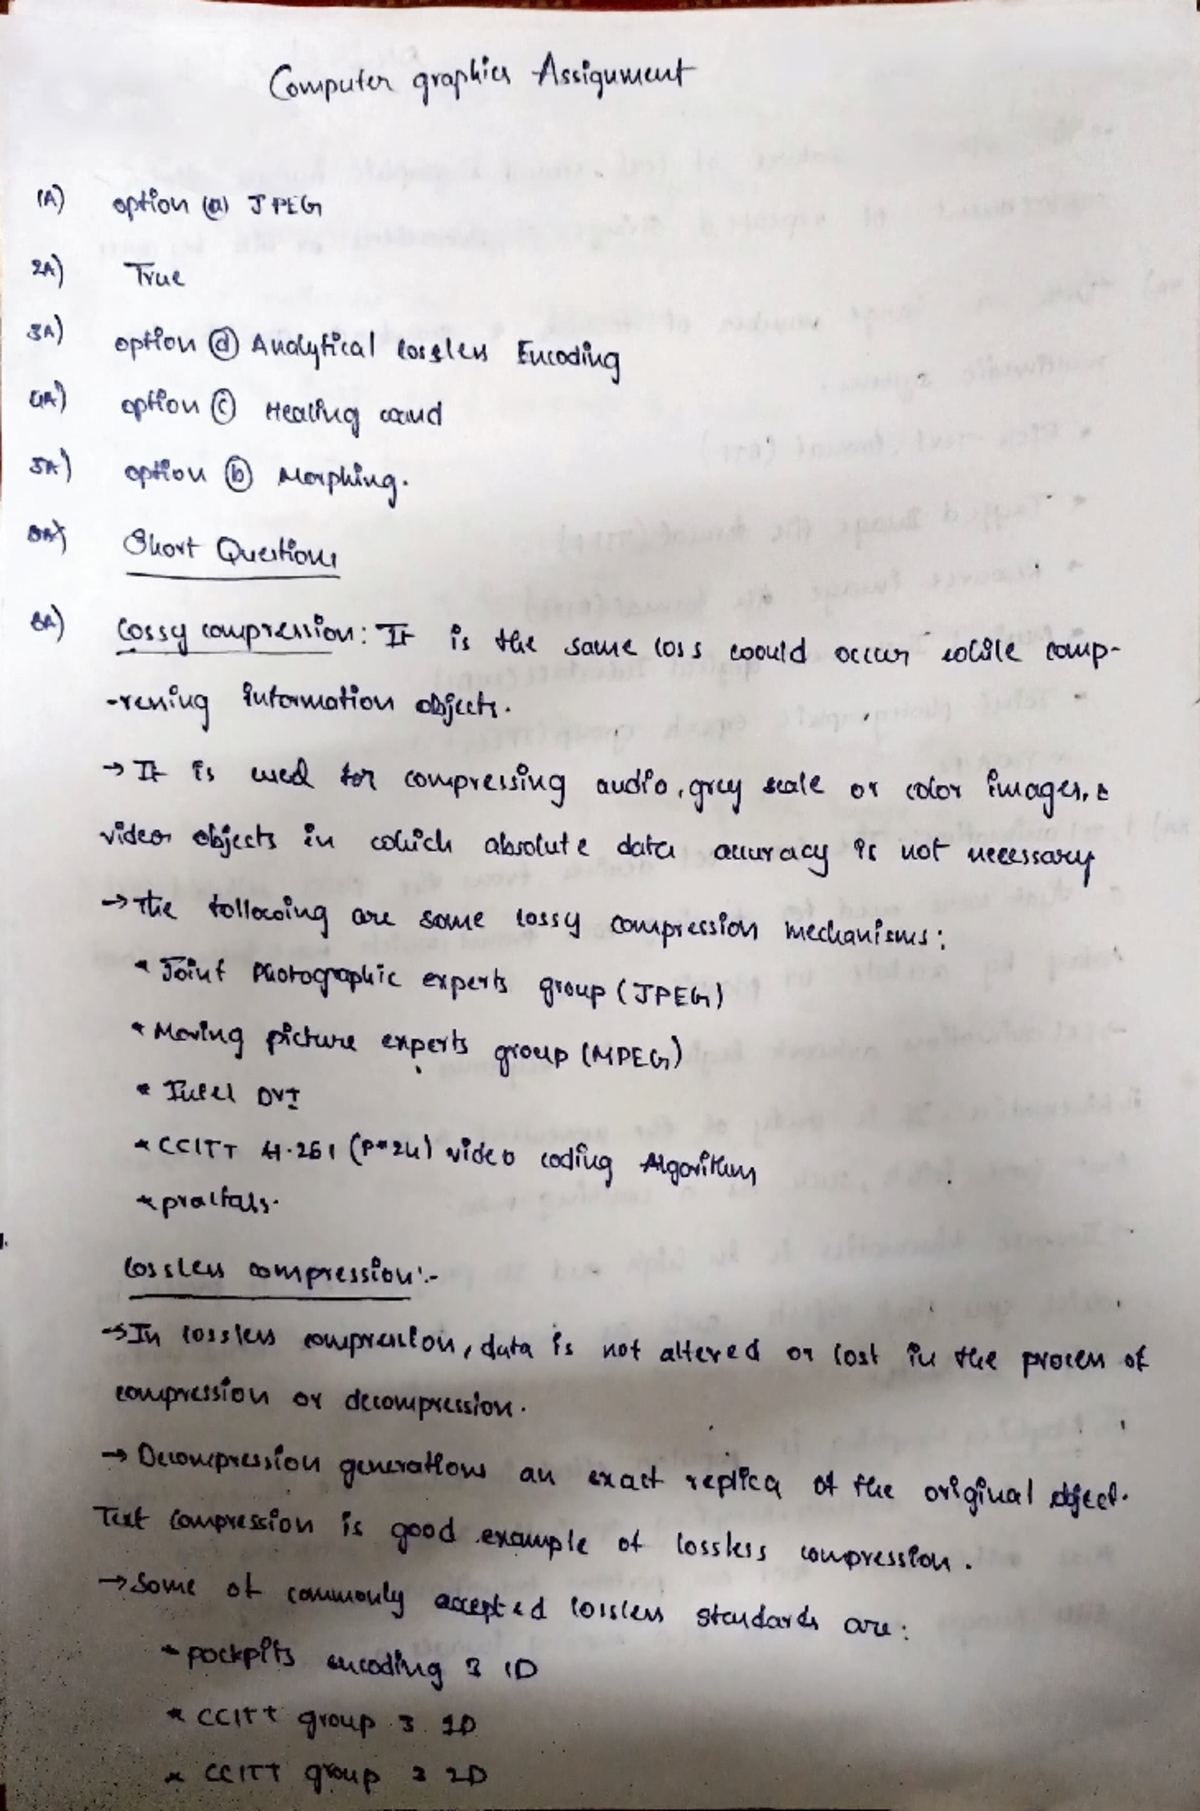 Computer graphics Assignment
1A) option (a) JPEG
2A) True
3A) option (d) Analytical lossless Encoding
4A) option (c) Healing wand
5A) option (b) Morphing.
Short Questions
6A) Lossy compression: It is the same loss would occur while comp-
-ressing information objects.
→ It is used for compressing audio, grey scale or color images, &
video objects in which absolute data accuracy is not necessary
→ The following are some lossy compression mechanisms:
* Joint Photographic experts group (JPEG)
* Moving picture experts group (MPEG)
* Intel DVI
* CCITT H.261 (P*24) video coding Algorithm
* fractals.
Lossless compression:-
→ In lossless compression, data is not altered or lost in the process of
compression or decompression.
→ Decompression generations an exact replica of the original object.
Text compression is good example of lossless compression.
→ Some of commonly accepted lossless standards are:
* pockpits encoding 3 1D
* CCITT group 3 1D
* CCITT group 3 2D